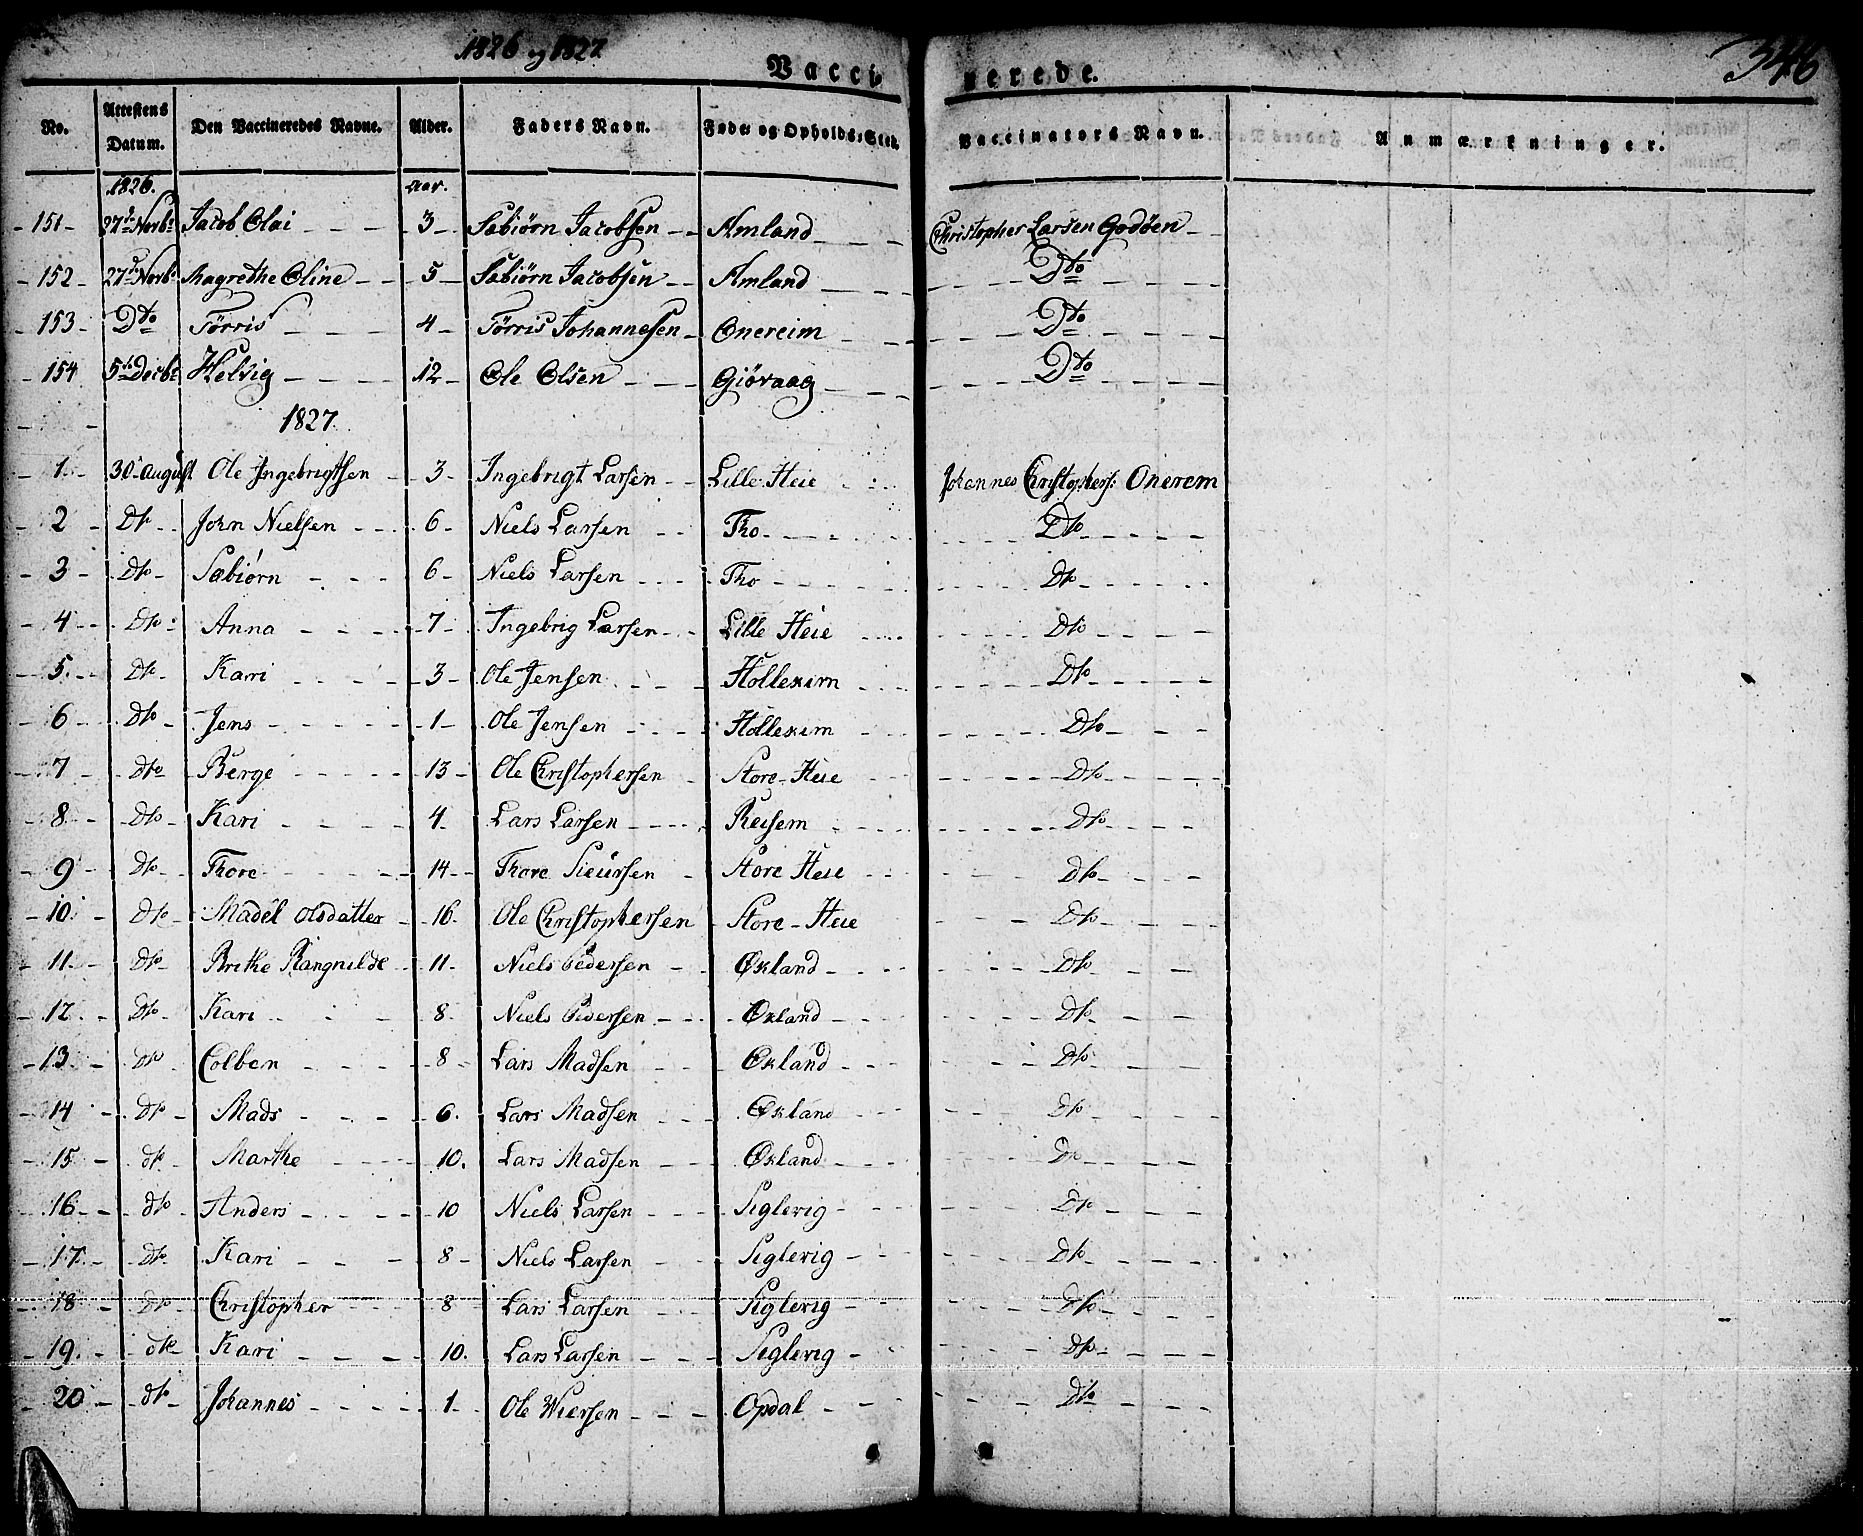 1826 og 1827
346
Vaccinerede.
No. Attestens Datum. Den Vaccineredes Navne. Alder. Faders Navn. Føde- og Opholds-Sted. Vaccinators Navn. Anmærkninger.
1826. Aar.
151 27de Novbr Jacob Olai 3 Sæbiørn Jacobsen Amland Christopher Larsen Godøen
152 27de Novbr Magrethe Oline 5 Sæbiørn Jacobsen Amland Dto
153 Dto Tørris 4 Tørris Johannesen Onereim Dto
154 5te Decbr Helvig 12 Ole Olsen Giøvaag Dto
1827.
1. 30 August Ole Ingebrigtsen 3 Ingebrigt Larsen Lille Heie Johannes Christophers: Onerem
2 Dto John Nielsen 6 Niels Larsen Tho Dto
3 Dto Sæbiørn 6 Niels Larsen Tho Dto
4 Dto Anna 7 Ingebrig Larsen Lille Heie Dto
5. Dto Kari 3 Ole Jensen Hollexim Dto
6 Dto Jens 1 Ole Jensen Hollexim Dto
7 Dto Berge 13 Ole Christophersen Store-Heie Dto
8 Dto Kari 4 Lars Larsen Reisem Dto
9 Dto Thore 14 Thore Sieursen Store Heie Dto
10 Dto Madel Olsdatter 16 Ole Christophersen Store-Heie Dto
11 Dto Brithe Rangnilde 11 Niels Pedersen Øxland Dto
12. Dto Kari 8 Niels Pedersen Øxland Dto
13. Dto Colben 8 Lars Madsen Øxland Dto
14 Dto Mads 6. Lars Madsen Øxland Dto
15 dto Marthe 10. Lars Madsen Øxland Dto
16 dto Anders 10 Niels Larsen Siglevig Dto
17. dto Kari 8 Niels Larsen Siglevig Dto
18 Dto Christopher 8 Lars Larsen Siglevig Dto
19. dto Kari 10. Lars Larsen Siglevig Dto
20 dto Johannes 1 Ole Wiersen Opdal Dto